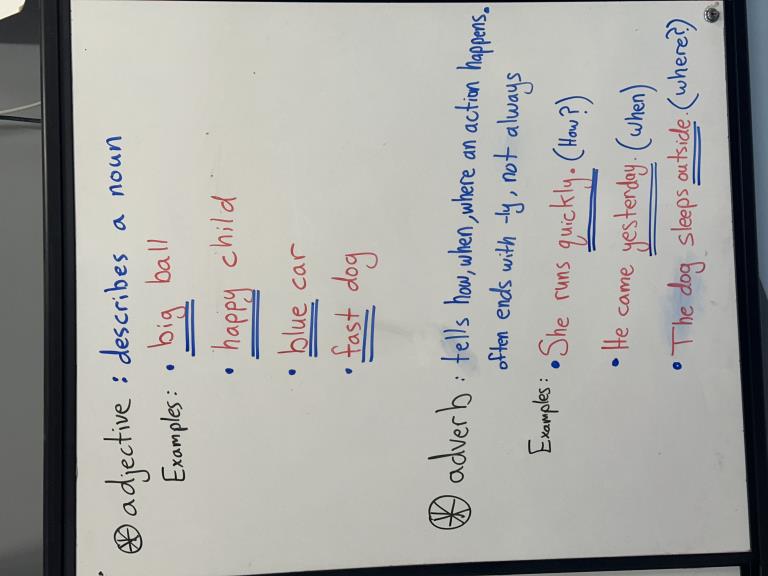 adjective : describes a noun
Examples: • big ball
• happy child
• blue car
• fast dog
adverb : tells how, when, where an action happens.
often ends with -ly, not always
Examples: • She runs quickly. (How?)
• He came yesterday. (when)
• The dog sleeps outside. (where?)